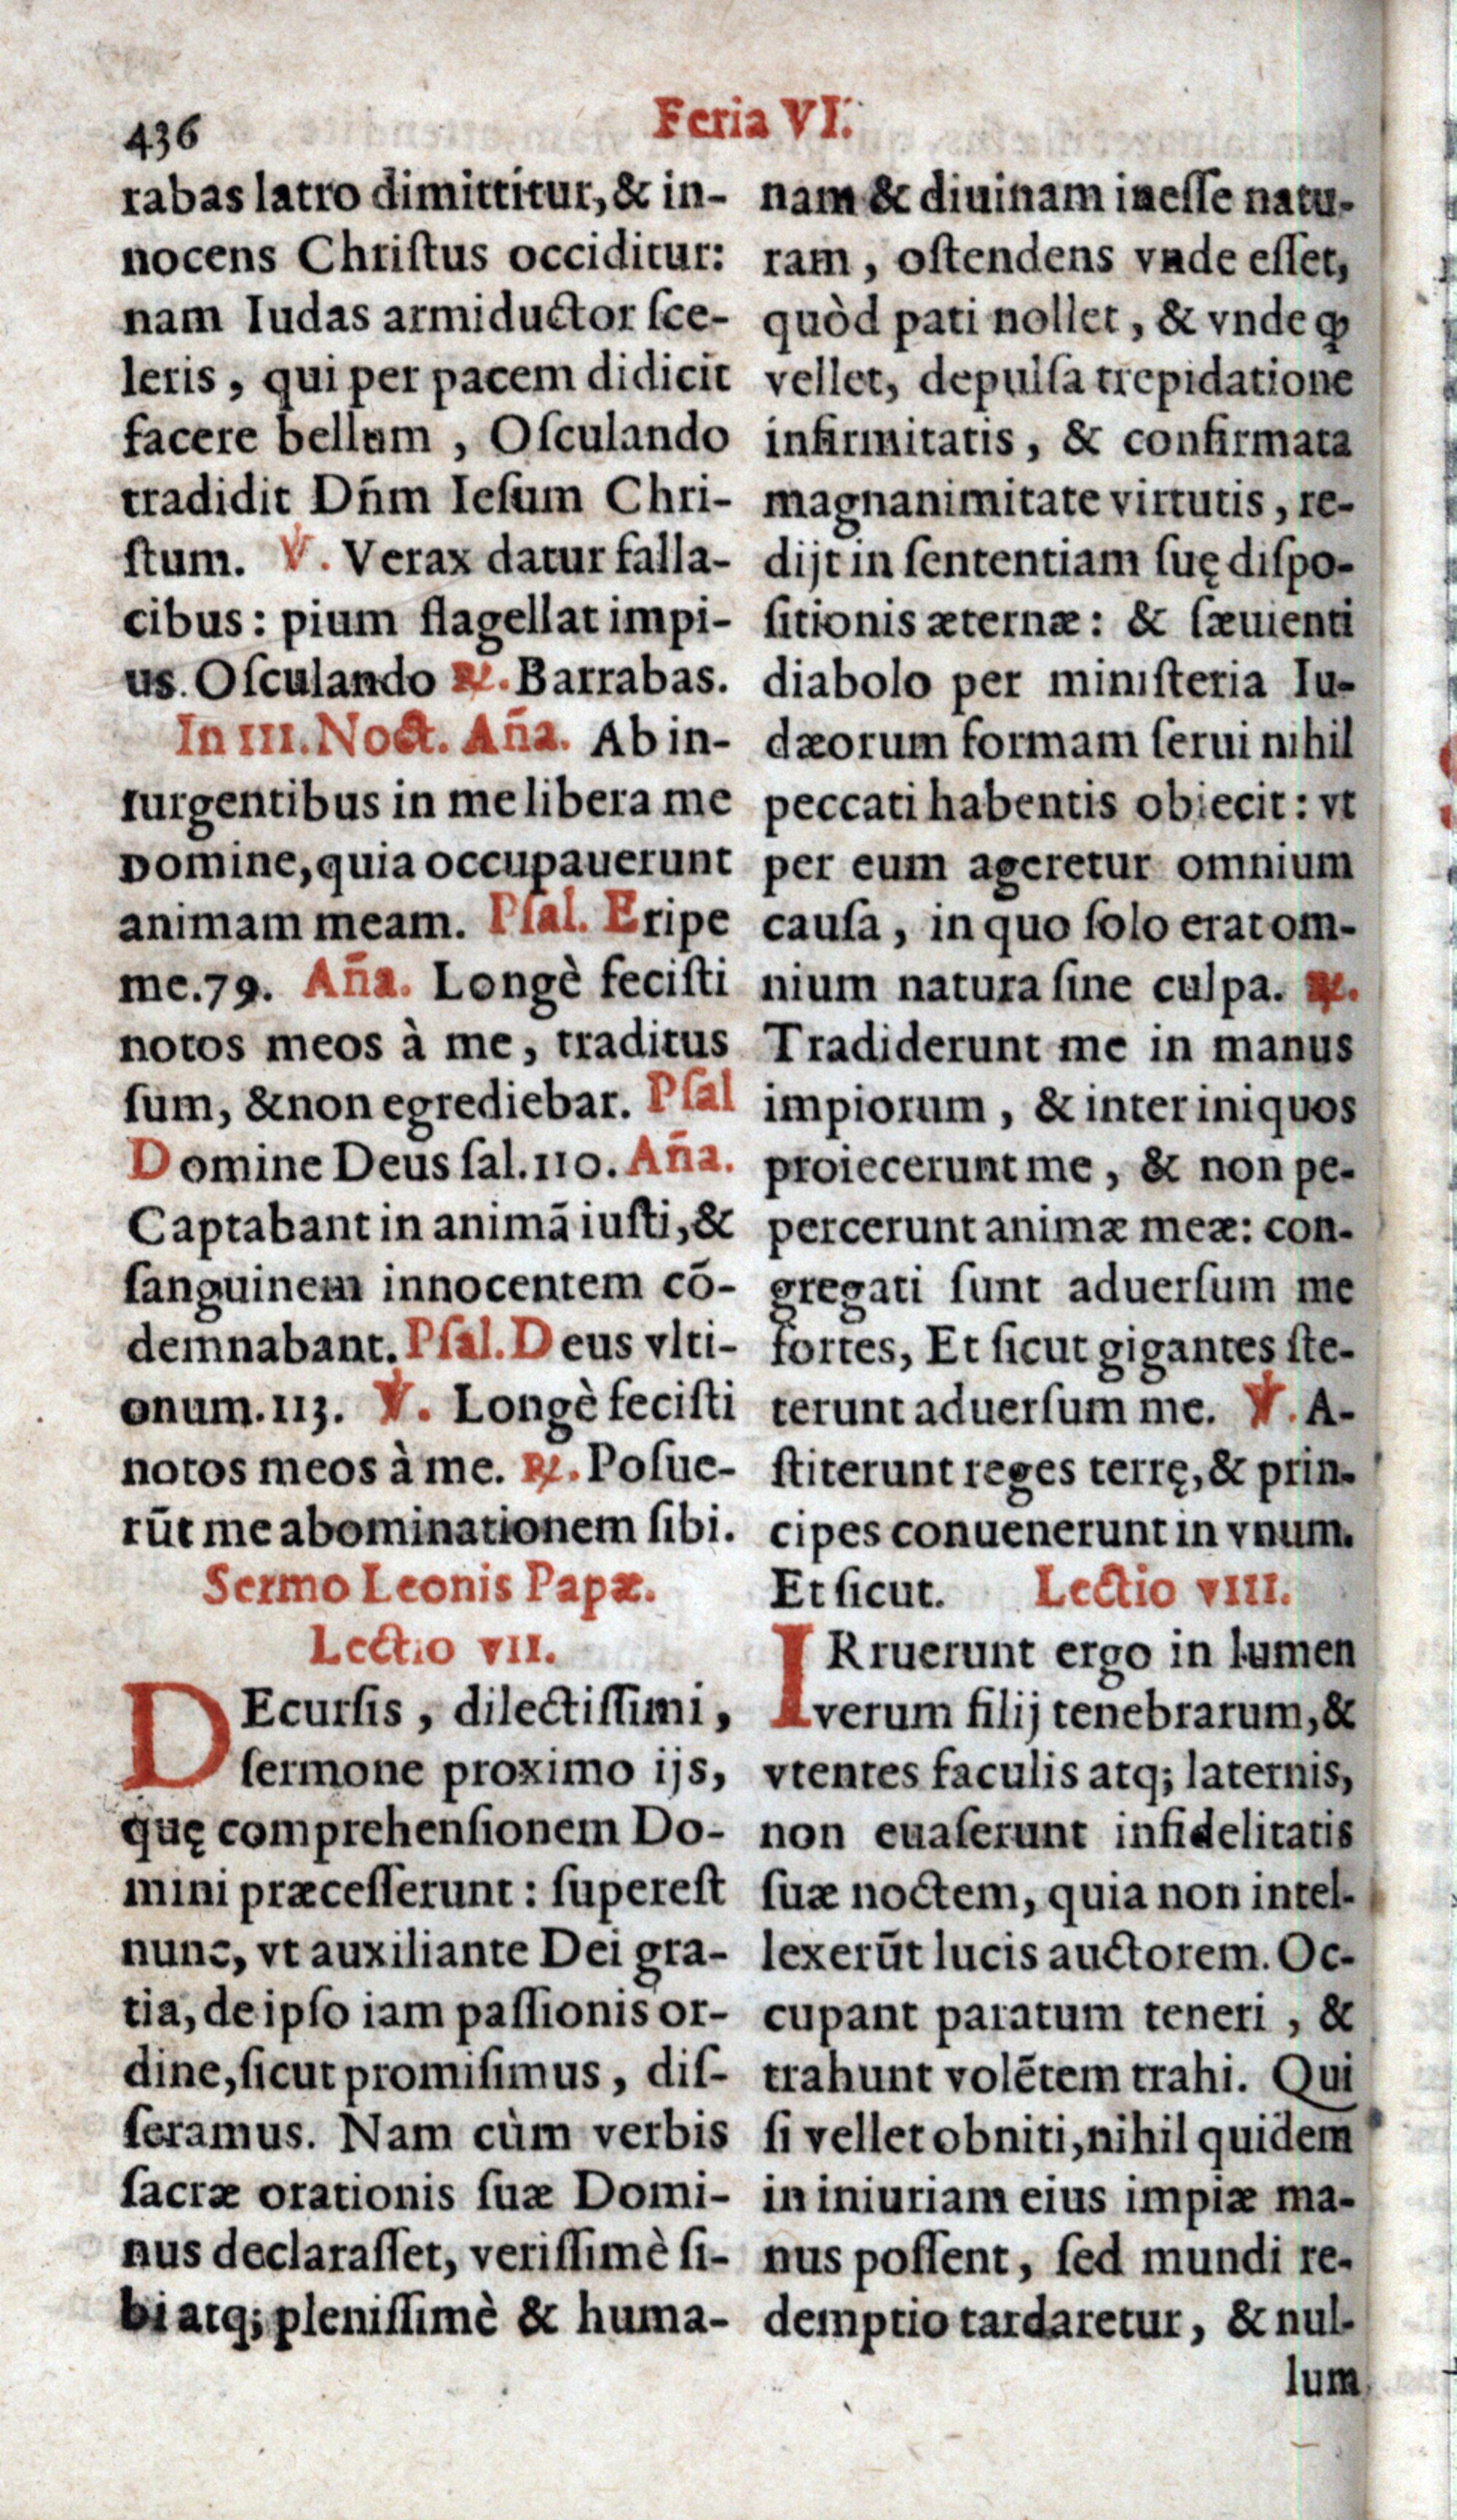 436
Feria VI.
rabas latro dimittitur, & in-
nocens Chriſtus occiditur:
nam Iudas armiductor ſce-
leris, qui per pacem didicit
facere bellum, Oſculando
tradidit Dñm Ieſum Chri-
ſtum. ℣. Verax datur falla-
cibus: pium flagellat impi-
us. Oſculando ℟. Barrabas.
In III. Noct. Aña. Ab in-
ſurgentibus in me libera me
Domine, quia occupauerunt
animam meam. Pſal. Eripe
me. 79. Aña. Longè feciſti
notos meos à me, traditus
ſum, & non egrediebar. Pſal
Domine Deus ſal. 110. Aña.
Captabant in animã iuſti, &
ſanguinem innocentem cõ-
demnabant. Pſal. Deus vlti-
onum. 113. ℣. Longè feciſti
notos meos à me. ℟. Poſue-
rũt me abominationem ſibi.
Sermo Leonis Papæ.
Lectio VII.
DEcurſis, dilectiſſimi,
ſermone proximo ijs,
quę comprehenſionem Do-
mini præceſſerunt: ſupereſt
nunc, vt auxiliante Dei gra-
tia, de ipſo iam paſſionis or-
dine, ſicut promiſimus, diſ-
ſeramus. Nam cùm verbis
ſacræ orationis ſuæ Domi-
nus declaraſſet, veriſſimè ſi-
bi atq; pleniſſimè & huma-
nam & diuinam ineſſe natu-
ram, oſtendens vnde eſſet,
quòd pati nollet, & vnde ꝙ
vellet, depulſa trepidatione
infirmitatis, & confirmata
magnanimitate virtutis, re-
dijt in ſententiam ſuę diſpo-
ſitionis æternæ: & ſæuienti
diabolo per miniſteria Iu-
dæorum formam ſerui nihil
peccati habentis obiecit: vt
per eum ageretur omnium
cauſa, in quo ſolo erat om-
nium natura ſine culpa. ℟.
Tradiderunt me in manus
impiorum, & inter iniquos
proiecerunt me, & non pe-
percerunt animæ meæ: con-
gregati ſunt aduerſum me
fortes, Et ſicut gigantes ſte-
terunt aduerſum me. ℣. A-
ſtiterunt reges terrę, & prin-
cipes conuenerunt in vnum.
Et ſicut. Lectio VIII.
IRruerunt ergo in lumen
verum filij tenebrarum, &
vtentes faculis atq; laternis,
non euaſerunt infidelitatis
ſuæ noctem, quia non intel-
lexerũt lucis auctorem. Oc-
cupant paratum teneri, &
trahunt volẽtem trahi. Qui
ſi vellet obniti, nihil quidem
in iniuriam eius impiæ ma-
nus poſſent, ſed mundi re-
demptio tardaretur, & nul-
lum